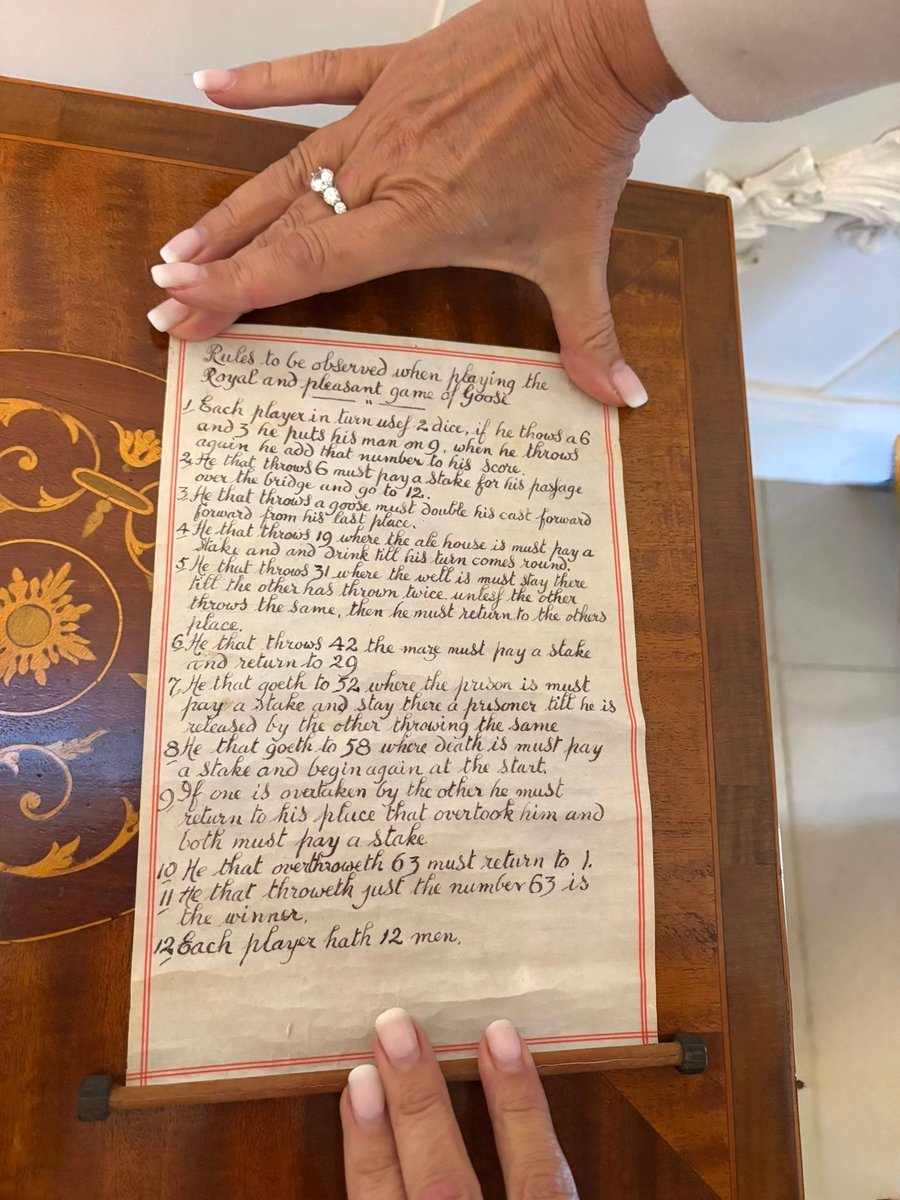 Rules to be observed when playing the
Royal and pleasant game of Goose
1 Each player in turn uses 2 dice, if he thows a 6
and 3 he puts his man on 9, when he throws
again he add that number to his score.
2 He that throws 6 must pay a stake for his passage
over the bridge and go to 12.
3 He that throws a goose must double his cast forward
forward from his last place.
4 He that throws 19 where the ale house is must pay a
stake and and drink till his turn comes round.
5 He that throws 31 where the well is must stay there
till the other has thrown twice unless the other
throws the same, then he must return to the others
place.
6 He that throws 42 the maze must pay a stake
and return to 29
7 He that goeth to 52 where the prison is must
pay a stake and stay there a prisoner till he is
released by the other throwing the same
8 He that goeth to 58 where death is must pay
a stake and begin again at the start.
9 If one is overtaken by the other he must
return to his place that overtook him and
both must pay a stake
10 He that overthroweth 63 must return to 1.
11 He that throweth just the number 63 is
the winner.
12 Each player hath 12 men.